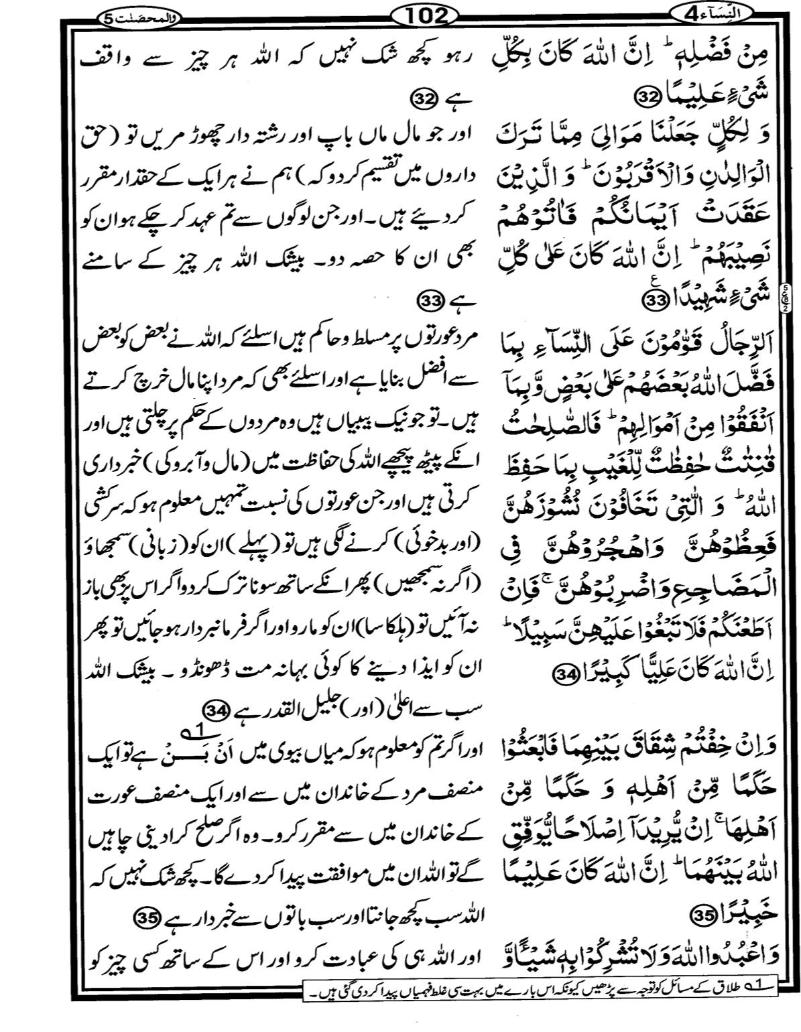 النِّسَآء 4
102
والمحصنت 5
مِنْ فَضْلِهٖ ؕ اِنَّ اللّٰهَ كَانَ بِكُلِّ
شَیْءٍ عَلِیْمًا 32
وَ لِكُلٍّ جَعَلْنَا مَوَالِیَ مِمَّا تَرَكَ
الْوَالِدٰنِ وَالْاَقْرَبُوْنَ ؕ وَ الَّذِیْنَ
عَقَدَتْ اَیْمَانُكُمْ فَاٰتُوْهُمْ
نَصِیْبَهُمْ ؕ اِنَّ اللّٰهَ كَانَ عَلٰی كُلِّ
شَیْءٍ شَهِیْدًا 33 ع
اَلرِّجَالُ قَوّٰمُوْنَ عَلَی النِّسَآءِ بِمَا
فَضَّلَ اللّٰهُ بَعْضَهُمْ عَلٰی بَعْضٍ وَّبِمَاۤ
اَنْفَقُوْا مِنْ اَمْوَالِهِمْ ؕ فَالصّٰلِحٰتُ
قٰنِتٰتٌ حٰفِظٰتٌ لِّلْغَیْبِ بِمَا حَفِظَ
اللّٰهُ ؕ وَ الّٰتِیْ تَخَافُوْنَ نُشُوْزَهُنَّ
فَعِظُوْهُنَّ وَاهْجُرُوْهُنَّ فِی
الْمَضَاجِعِ وَاضْرِبُوْهُنَّ ۚ فَاِنْ
اَطَعْنَكُمْ فَلَا تَبْغُوْا عَلَیْهِنَّ سَبِیْلًا ؕ
اِنَّ اللّٰهَ كَانَ عَلِیًّا كَبِیْرًا 34
وَاِنْ خِفْتُمْ شِقَاقَ بَیْنِهِمَا فَابْعَثُوْا
حَكَمًا مِّنْ اَهْلِهٖ وَ حَكَمًا مِّنْ
اَهْلِهَا ۚ اِنْ یُّرِیْدَاۤ اِصْلَاحًا یُّوَفِّقِ
اللّٰهُ بَیْنَهُمَا ؕ اِنَّ اللّٰهَ كَانَ عَلِیْمًا
خَبِیْرًا 35
وَاعْبُدُوا اللّٰهَ وَلَا تُشْرِكُوْا بِهٖ شَیْـًٔا وَّ
رہو کچھ شک نہیں کہ اللہ ہر چیز سے واقف
ہے 32
اور جو مال ماں باپ اور رشتہ دار چھوڑ مریں تو (حق
داروں میں تقسیم کردو کہ) ہم نے ہر ایک کے حقدار مقرر
کردیئے ہیں۔ اور جن لوگوں سے تم عہد کر چکے ہو ان کو
بھی ان کا حصہ دو۔ بیشک اللہ ہر چیز کے سامنے
ہے 33
مرد عورتوں پر مسلط و حاکم ہیں اسلئے کہ اللہ نے بعض کو بعض
سے افضل بنایا ہے اور اسلئے بھی کہ مرد اپنا مال خرچ کرتے
ہیں۔ تو جو نیک بیبیاں ہیں وہ مردوں کے حکم پر چلتی ہیں اور
انکے پیٹھ پیچھے اللہ کی حفاظت میں (مال و آبرو کی) خبرداری
کرتی ہیں اور جن عورتوں کی نسبت تمہیں معلوم ہو کہ سرکشی
(اور بدخوئی) کرنے لگی ہیں تو (پہلے) ان کو (زبانی) سمجھاؤ
(اگر نہ سمجھیں) پھر انکے ساتھ سونا ترک کردو اگر اس پر بھی باز
نہ آئیں تو (ہلکا سا) ان کو مارو اور اگر فرمانبردار ہو جائیں تو پھر
ان کو ایذا دینے کا کوئی بہانہ مت ڈھونڈو۔ بیشک اللہ
سب سے اعلیٰ (اور) جلیل القدر ہے 34
اور اگر تم کو معلوم ہو کہ میاں بیوی میں اَنْ بَــنْ 1؎ ہے تو ایک
منصف مرد کے خاندان میں سے اور ایک منصف عورت
کے خاندان میں سے مقرر کرو۔ وہ اگر صلح کرا دینی چاہیں
گے تو اللہ ان میں موافقت پیدا کردے گا۔ کچھ شک نہیں کہ
اللہ سب کچھ جانتا اور سب باتوں سے خبردار ہے 35
اور اللہ ہی کی عبادت کرو اور اس کے ساتھ کسی چیز کو
1؎ طلاق کے مسائل کو توجہ سے پڑھیں کیونکہ اس بارے میں بہت سی غلط فہمیاں پیدا کردی گئی ہیں۔